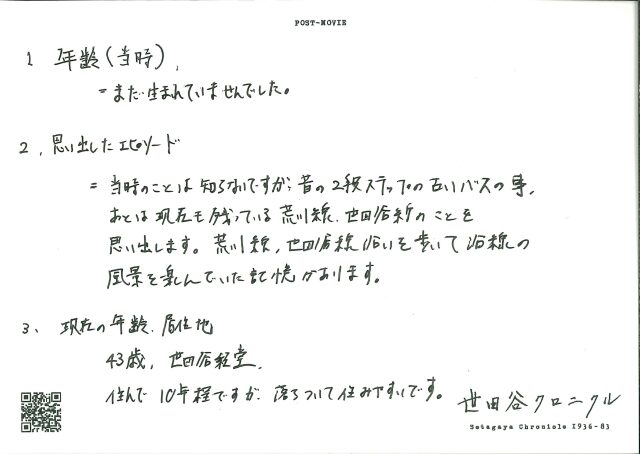 POST-MOVIE
1 年齢(当時)、
= まだ生まれていませんでした。
2、思い出したエピソード
= 当時のことは知らないですが、昔の2段ステップの古いバスの事、
あとは現在も残っている荒川線、世田谷線のことを
思い出します。荒川線、世田谷線沿いを歩いて沿線の
風景を楽しんでいた記憶があります。
3、現在の年齢、居住地
43歳、世田谷経堂、
住んで10年程ですが、落ちついて住みやすいです。
世田谷クロニクル
Setagaya Chronicle 1936-83